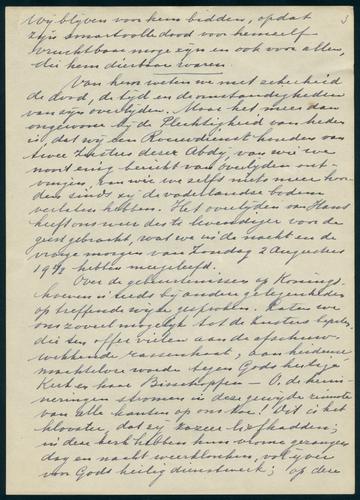 3
Wij blijven voor hem bidden, opdat
zijn smartvolle dood voor hemzelf
vruchtbaar moge zijn en ook voor allen,
die hem dierbaar waren.
Van hem weten we met zekerheid
de dood, de tijd en de omstandigheden
van zijn overlijden. Maar het meer dan
ongewone bij de Plechtigheid van heden
is, dat wij een Rouwdienst houden van
twee Zusters dezer Abdij, van wie we
nooit enig bericht van overlijden ont-
vingen, van wie we zelfs niets meer hoor-
den sinds zij de vaderlandse bodem
verlaten hebben. Het overlijden van Hans
heeft ons weer des te levendiger voor de
geest gebracht, wat we in de nacht en de
vroege morgen van Zondag 2 Augustus
hebben meegeleefd.
Over de gebeurtenissen op Konings-
hoeven is reeds bij andere gelegenheden
op treffende wijze gesproken. Laten we
ons zoveel mogelijk tot de Zusters bepalen,
die ten offer vielen aan de afschuw-
wekkende rassenhaat, aan heidense
machtelose woede tegen Gods heilige
Kerk en haar Bisschoppen — O, de herin-
neringen stromen in deze gewijde ruimte
van alle kanten op ons toe! Dit is het
klooster, dat zij zozeer liefhadden;
in deze kerk hebben hun vrome gezangen
dag en nacht weerklonken, vol ijver
voor Gods heilig dienstwerk; op deze